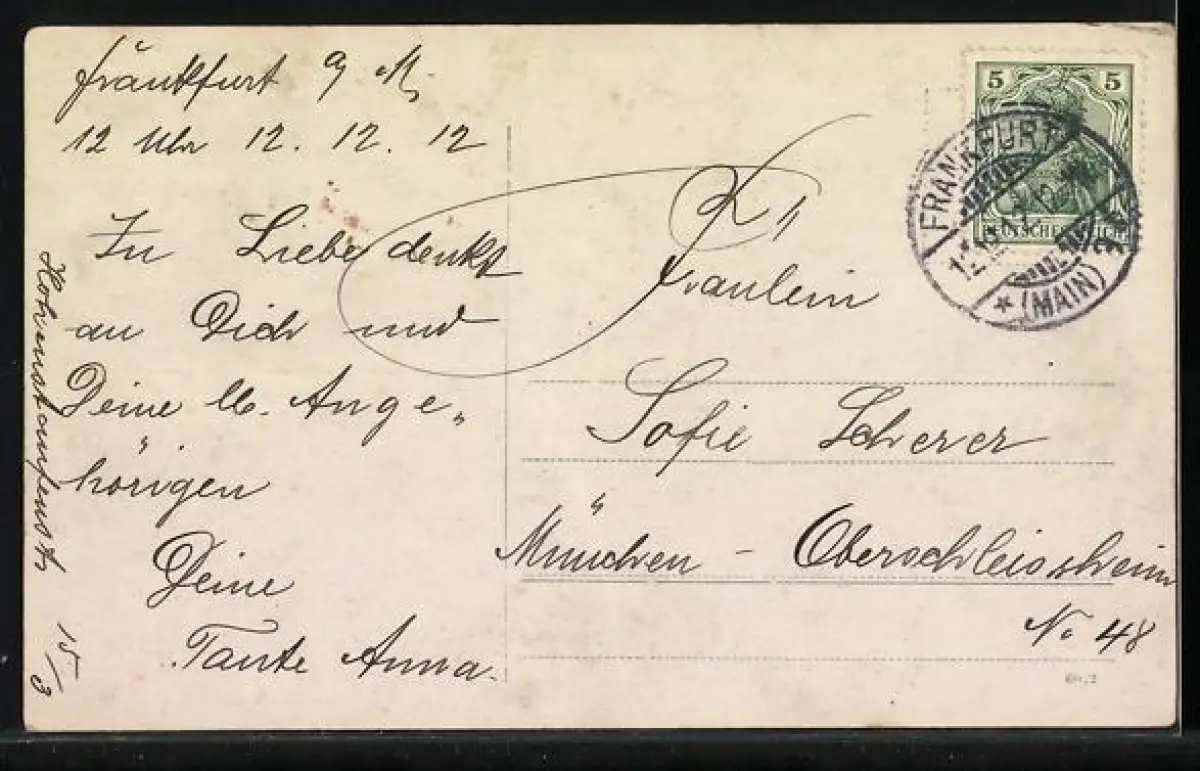 Frankfurt a/M.
12 Uhr 12. 12. 12
In Liebe denkt
an Dich und
Deine lb. Ange„
hörigen
Deine
Tante Anna.
Hohenstaufenstr. 15/3
Fräulein
Sofie Scherer
München - Oberschleissheim
No 48
5 5
DEUTSCHES REICH
FRANKFURT
12.12.12
* (MAIN)